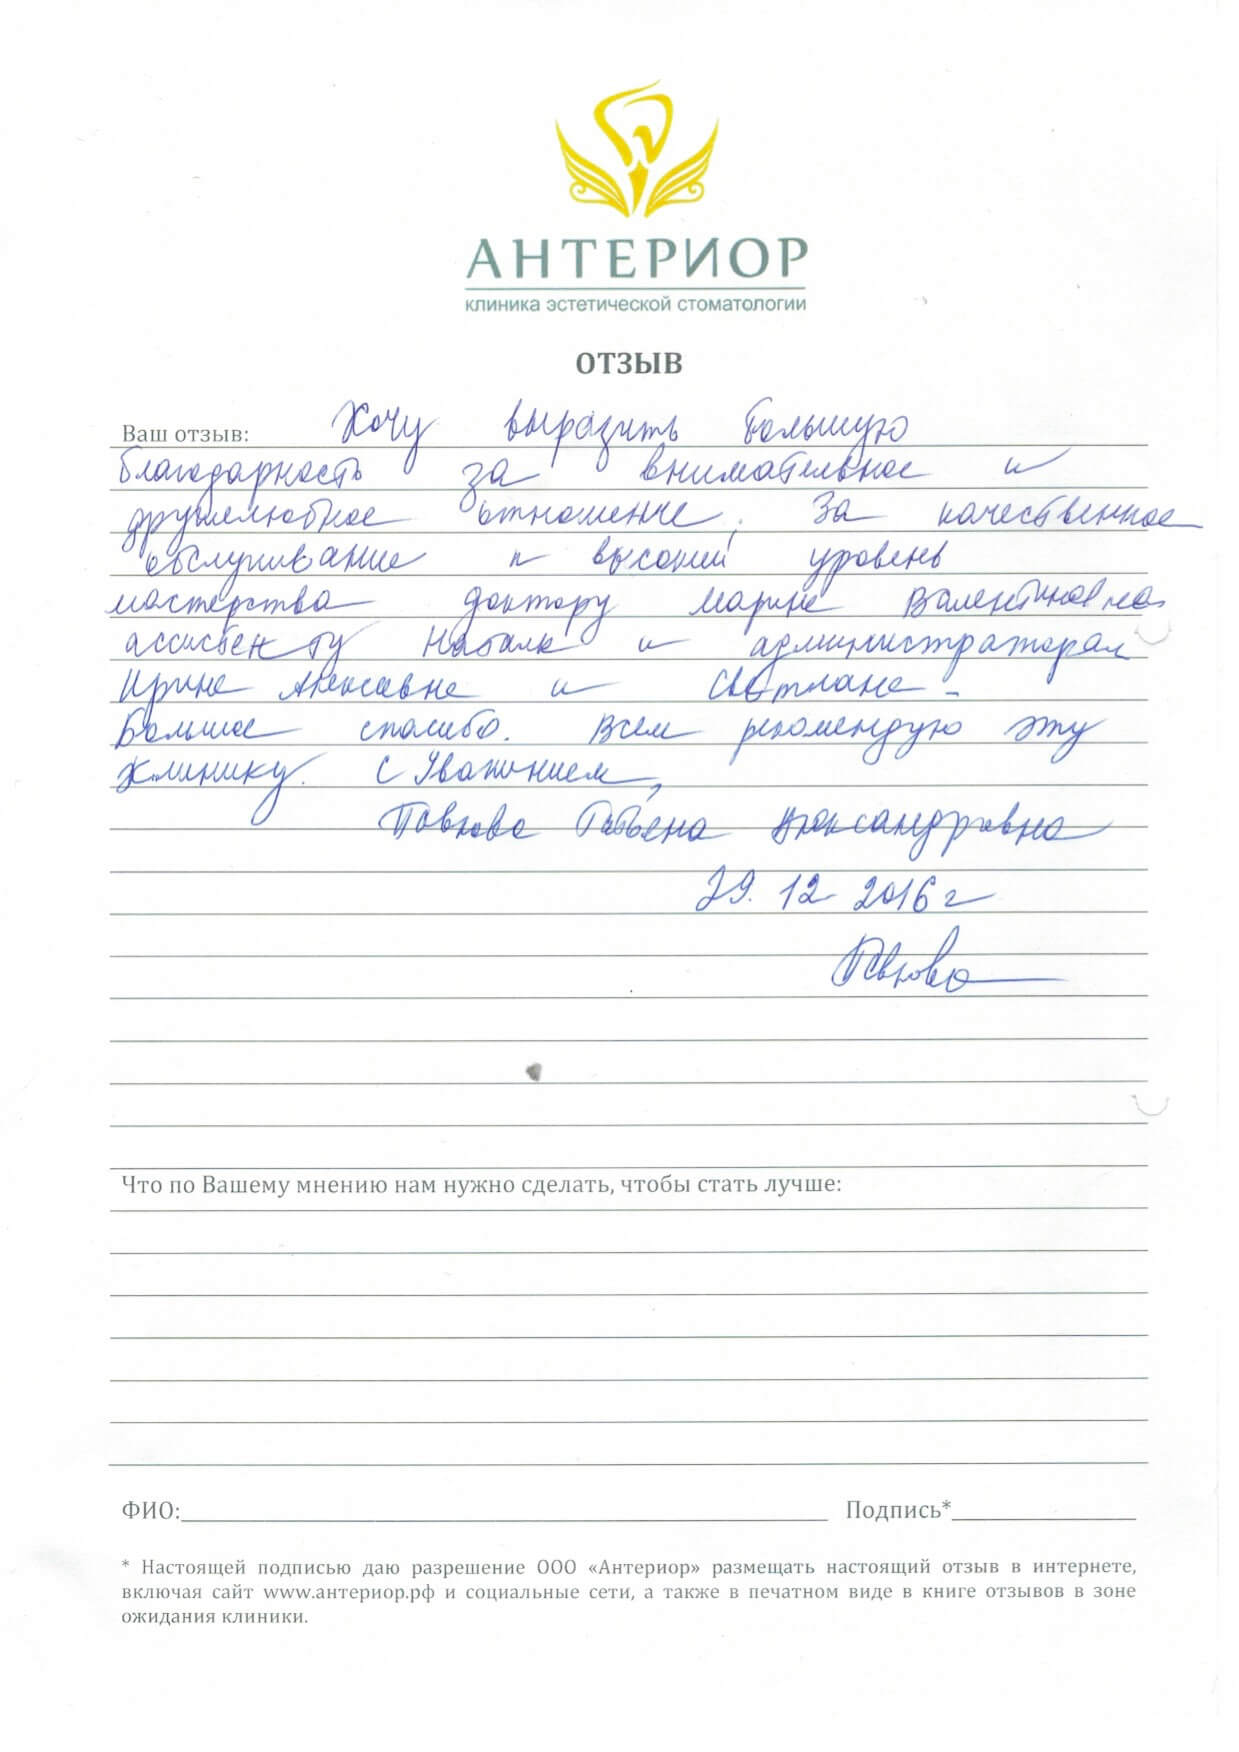 АНТЕРИОР
клиника эстетической стоматологии
ОТЗЫВ
Ваш отзыв: Хочу выразить большую
благодарность за внимательное и
дружелюбное отношение. За качественное
обслуживание и высокий уровень
мастерства доктору Марине Валентиновне
ассистенту Натали и администраторам
Ирине Алексеевне и Светлане.
Большое спасибо. Всем рекомендую эту
клинику. С Уважением,
Татьяна Александровна
29. 12 2016 г
Что по Вашему мнению нам нужно сделать, чтобы стать лучше:
ФИО: Подпись*
* Настоящей подписью даю разрешение ООО «Антериор» размещать настоящий отзыв в интернете,
включая сайт www.антериор.рф и социальные сети, а также в печатном виде в книге отзывов в зоне
ожидания клиники.